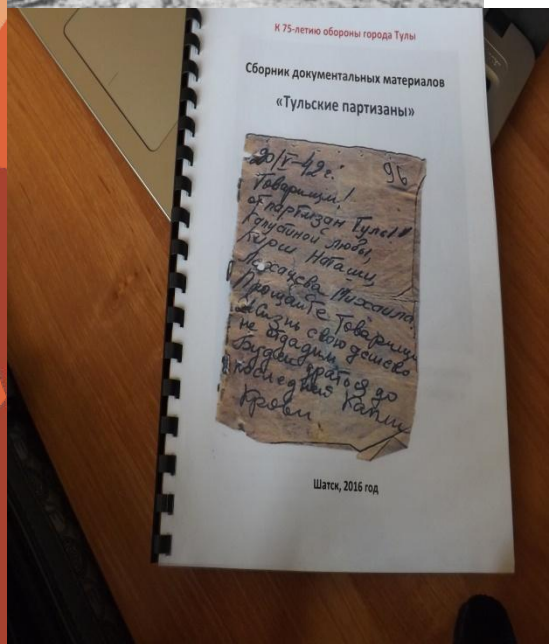 К 75-летию обороны города Тулы
Сборник документальных материалов
«Тульские партизаны»
20/V-42г.
96
Товарищи!
от партизан Тулы!
Голубиной Любы,
Кирш Наташи
Михаила
Прощайте товарищи
Жизнь свою дешево
не отдадим
Будем драться до
последний капли
Крови
Шатск, 2016 год